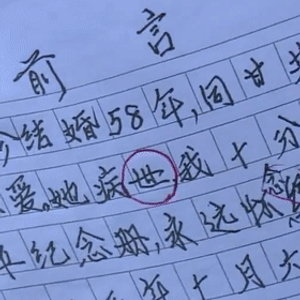 前言
结婚58年,同甘
爱。她病世我十分
年纪念册,永远怀念
年十月六